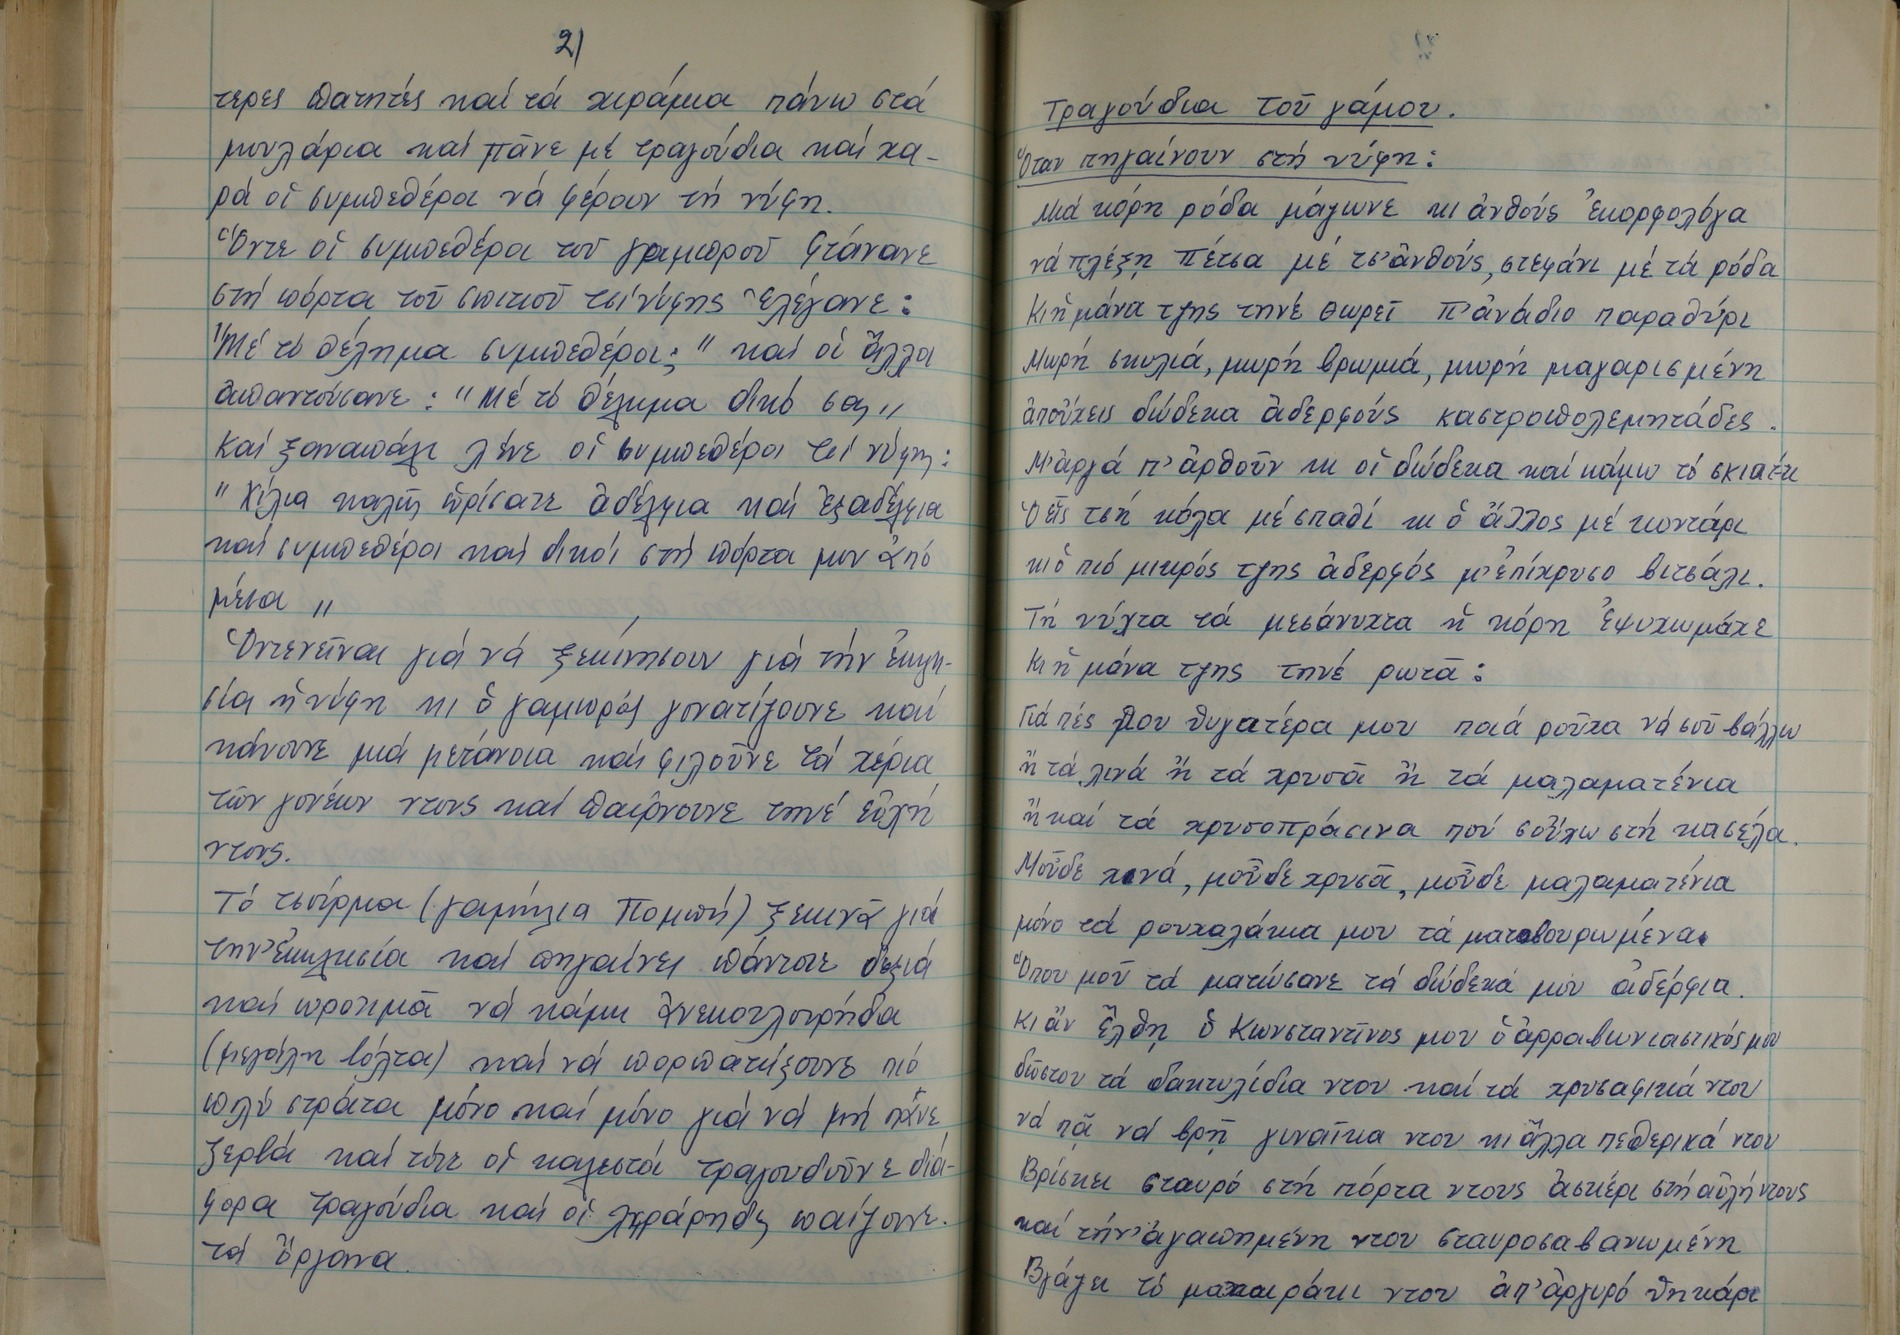 2)
τερες πατητές καί τά χιράμια πάνω στά
μουλάρια καί πᾶνε μέ τραγούδια καί χα-
ρά οἱ συμπεθέροι νά φέρουν τή νύφη.
Ὅντε οἱ συμπεθέροι του γαμπροῦ φτάνανε
στή πόρτα τοῦ σπιτιοῦ τσί νύφης ἐλέγανε:
"Μέ τό θέλημα συμπεθέροι;" καί οἱ ἄλλοι
ἀπαντούσανε: "Μέ τό θέλημα δικό σας"
Καί ξαναπάλι λένε οἱ συμπεθέροι τσί νύφης:
"Χίλια καλῶς ὡρίσατε ἀδέλφια καί ἐξαδέλφια
καί συμπεθέροι καί δικοί στή πόρτα μου ἀπό
μέσα"
Ὁντενεῖναι γιά νά ξεκινήσουν γιά τήν ἐκκλη-
σία ἡ νύφη κι ὁ γαμπρός γονατίζουνε καί
κάνουνε μιά μετάνοια καί φιλοῦνε τά χέρια
τῶν γονέων ντους καί παίρνουνε τηνέ εὐχή
ντους.
Τό τσούρμα (γαμήλια Πομπή) ξεκινᾶ γιά
την ἐκκλησία καί πηγαίνει πάντοτε δεξιά
καί προτιμᾶ νά κάμη ἀνεκουλουρήδα
(μεγάλη βόλτα) καί νά πορπατήξουνε πιό
πολύ στράτα μόνο καί μόνο γιά νά μή πᾶνε
ζερβά καί τότε οἱ καλεστοί τραγουδοῦνε διά-
φορα τραγούδια καί οἱ λυράρηδες παίζουνε
τά ὄργανα.
Τραγούδια τοῦ γάμου.
Ὅταν πηγαίνουν στή νύφη:
Μιά κόρη ρόδα μάζωνε κι ἀνθούς ἐκορφολόγα
νά πλέξη πέτσα μέ τσ' ἀνθούς, στεφάνι μέ τά ρόδα
Κι ἡ μάνα τζης τηνέ θωρεῖ π' ἀνάδιο παραθύρι
Μωρή σκυλιά, μωρή βρωμιά, μωρή μαγαρισμένη
ἀπούχεις δώδεκα ἀδερφούς καστροπολεμητάδες.
Μ' ἀργά π' ἀρθοῦν κι οἱ δώδεκα καί κάμω τό σκιατί
Ὁ εἷς τσή κόλα μέ σπαθί κι ὁ ἄλλος μέ κοντάρι
κι ὁ πιό μικρός τζης ἀδερφός μ' ἐπίχρυσο βιτσάλι.
Τή νύχτα τά μεσάνυχτα ἡ κόρη ἐψυχομάχε
Κι ἡ μάνα τζης τηνέ ρωτᾶ:
Γιά πές μου θυγατέρα μου ποιά ροῦχα νά σοῦ βάλλω
ἤ τά λινά ἤ τά χρυσᾶ ἤ τά μαλαματένια
ἤ καί τά χρυσοπράσινα πού σοὔχω στή κασέλα.
Μοῦδε λινά, μοῦδε χρυσᾶ, μοῦδε μαλαματένια
μόνο τά ρουχαλάκια μου τά ματοβουρωμένα.
Ὅπου μοῦ τά ματώσανε τά δώδεκά μου ἀδέρφια.
Κι ἄν ἔλθη ὁ Κωνσταντῖνος μου ὁ ἀρραβωνιαστικός μου
δῶστου τά δακτυλίδια ντου καί τά χρυσαφικά ντου
νά πᾶ νά βρῆ γυναῖκα ντου κι ἄλλα πεθερικά ντου
Βρίσκει σταυρό στή πόρτα ντους ἀσκέρι στή αὐλή ντους
καί τήν ἀγαπημένη ντου σταυροσαβανωμένη
Βγάζει τό μαχαιράκι ντου ἀπ' ἀργυρό θηκάρι